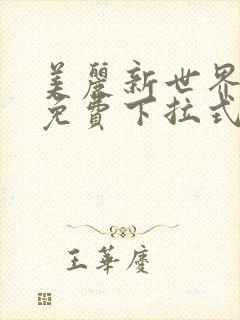 美麗新世界
免費下拉式
王華慶